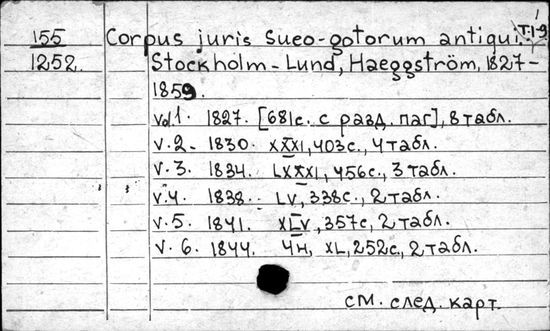 155 Corpus juris Sueo-gotorum antiqui. Т. 1-9
1252. Stockholm-Lund, Haeggström, 1827-
1859.
Vol. 1. 1827. [681с. с разд. паг], 8 табл.
V. 2- 1830. XXXI, 403с., 4 табл.
V. 3. 1834. LXXXI, 456с., 3 табл.
V. 4. 1838. LV, 338с., 2 табл.
V. 5. 1841. XLV, 357с, 2 табл.
V. 6. 1844. 4н, XL, 252с, 2 табл.
см. след. карт.